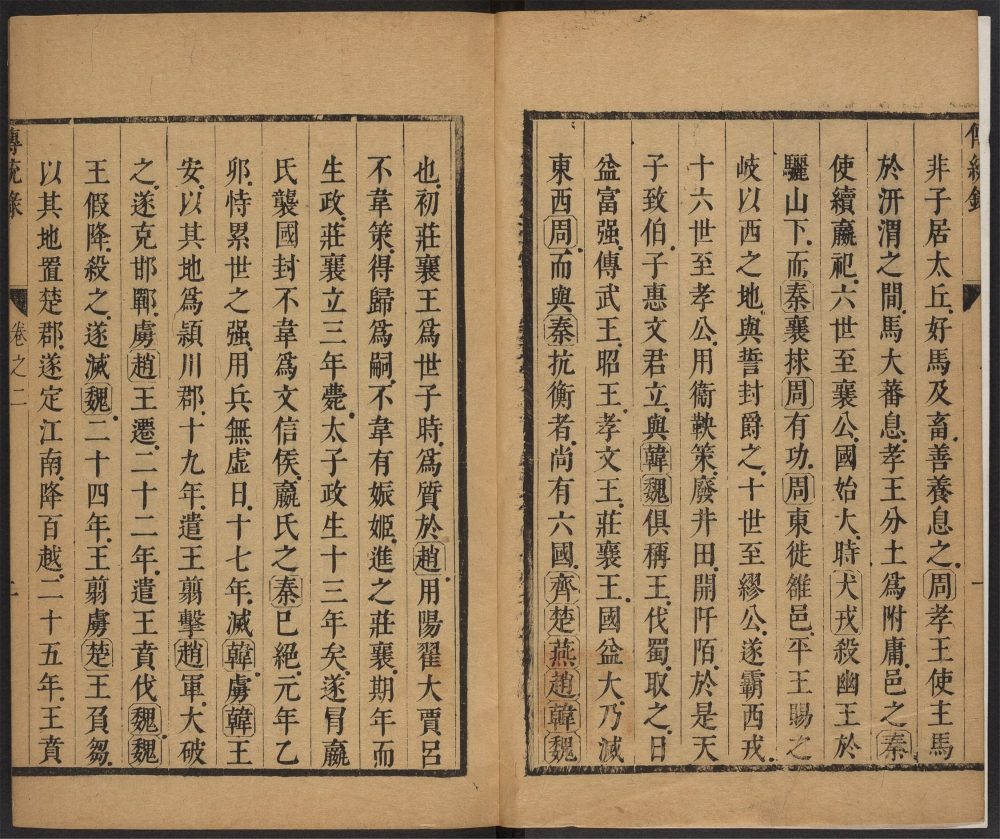 非子居太丘好馬及畜善養息之周孝王使主馬
於汧渭之間馬大蕃息孝王分土爲附庸邑之秦
使續嬴祀六世至襄公國始大時犬戎殺幽王於
驪山下而秦襄捄周有功周東徙雒邑平王賜之
岐以西之地與誓封爵之十世至繆公遂霸西戎
十六世至孝公用衞鞅策廢井田開阡陌於是天
子致伯子惠文君立與韓魏俱稱王伐蜀取之日
益富强傳武王昭王孝文王莊襄王國益大乃滅
東西周而與秦抗衡者尚有六國齊楚燕趙韓魏
也初莊襄王爲世子時爲質於趙用陽翟大賈呂
不韋策得歸爲嗣不韋有娠姬進之莊襄期年而
生政莊襄立三年薨太子政生十三年矣遂冐嬴
氏襲國封不韋爲文信侯嬴氏之秦已絕元年乙
卯恃累世之强用兵無虛日十七年滅韓虜韓王
安以其地爲頴川郡十九年遣王翦擊趙軍大破
之遂克邯鄲虜趙王遷二十二年遣王賁伐魏魏
王假降殺之遂滅魏二十四年王翦虜楚王負芻
以其地置楚郡遂定江南降百越二十五年王賁
傳統錄
卷之二